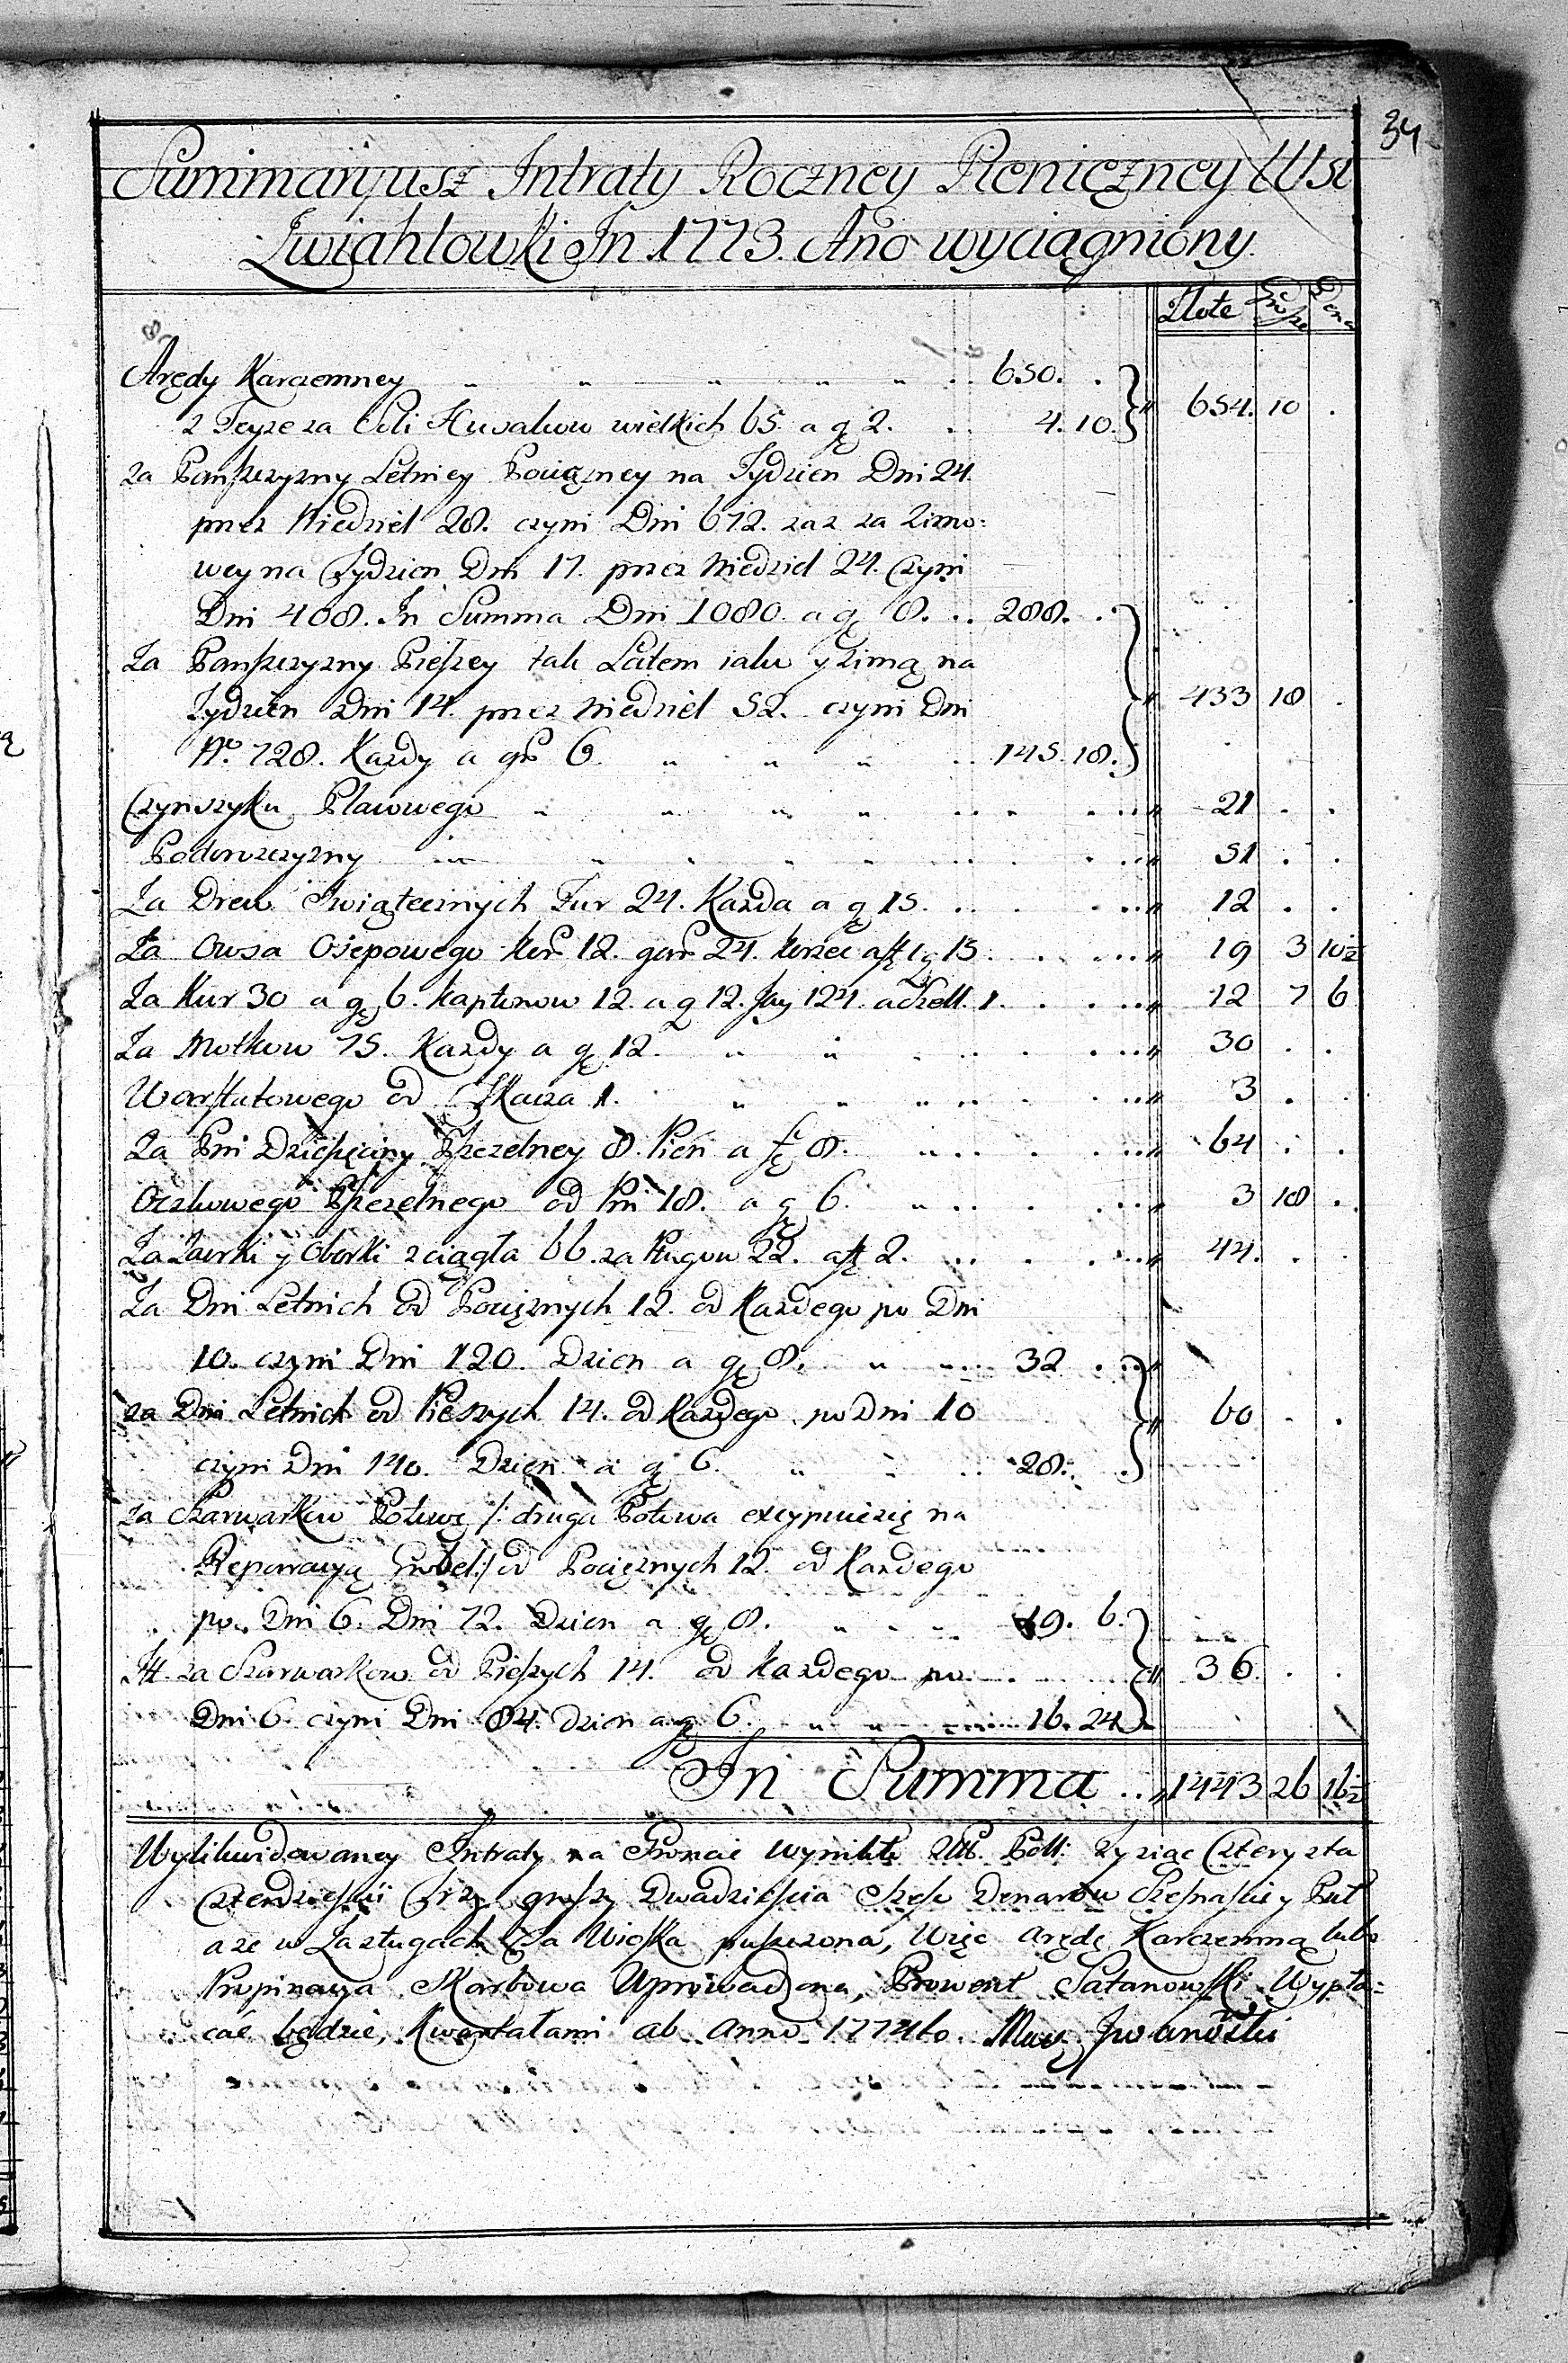 34
Summaryusz Intraty Roczney Pienięzney Wsi
Zwiahlowki In 1773. Año wyciągniony.
Złote Grosze Dena
Arędy Karczemney 650. . 654. 10 .
z Teyze za Soli Husakow wielkich 65. a gę 2. 4. 10.
za Panszczyzny Letniey Pociązney na Tydzien Dni 24.
przez Niedziel 28. czyni Dni 672. zas za Zimo:
wey na Tydzien Dni 17. przez Niedziel 24. Czyni
Dni 408. In Summa Dni 1080. a gę 8. 288. .
Za Panszczyzny Pieszey tak Latem iako y Zimą na
Tydzien Dni 14. przez Niedziel 52. czyni Dni 433 18 .
No. 728. Kazdy a gr 6. 145. 18.
Czynszyku Pławowego 21 . .
Podorszczyzny 51 . .
Za Drew Swiątecznych Fur 24. Kazda a gę 15. 12 . .
Za Owsa Osepowego kor 12. gar 24. korzec a fę 1 g 15. 19 3 10½
Za Kur 30 a gę 6. kapłonow 12. a g 12. Jay 124. a Szell. 1. 12 7 6
Za Motkow 75. Kazdy a gę 12. 30 . .
Warsztatowego od Tkacza 1. 3 . .
Za Pni Dziesięciny Pszczelney 8. Pień a fę 8. 64 . .
Oczkowego Pszczelnego od Pni 18. a gę 6. 3 18 .
Za Zaorki y Oborki zciągła 66. za Pługow 22. a fę 2. 44. . .
Za Dni Letnich od Pociąznych 12. od Kazdego po Dni
10. czyni Dni 120. Dzien a gę 8. 32 .
za Dni Letnich od Pieszych 14. od Kazdego po Dni 10 60 . .
czyni Dni 140. Dzien a gę 6. 28. .
za Szarwarkow Połowę /: druga Połowa excypuie się na
Reperacyą Grobel :/ od Pociąznych 12. od Kazdego
po Dni 6. Dni 72. Dzien a gę 8. 19. 6.
It. za Szarwarkow od Pieszych 14. od Kazdego po 36. . .
Dni 6. czyni Dni 84. dzien a gę 6. 16. 24
In Summa 1443 26 16½
Wylikwidowaney Intraty na Gruncie wynikło Złł. Poll. Tysiąc Czterysta
Czterdziesci Trzy groszy Dwadziescia Szesc Denarow Szesnascie y Puł
a ze w Zasługach Ta Wioska puszczona, Więc Arędę Karczemną lubo
Propinacya Skarbowa Uprowadzona, Prowent Satanowski Wypła=
cać będzie, Kwartałami ab Anno 1774to. Iwanowski